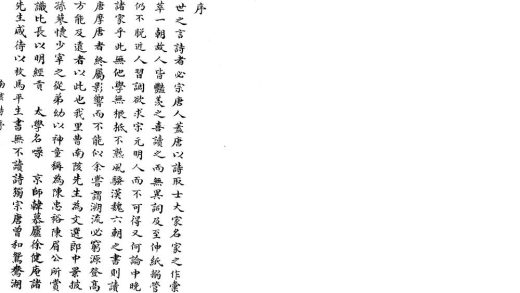 序
世之言詩者必宗唐人蓋唐以詩取士大家名家之作彙
萃一朝故人皆豔羨之喜讀之而無異詞及至伸紙搦管
仍不脫近人習調欲求宋元明人而不可得又何論中晚
諸家乎此無他學無根抵不熟風騷漢魏六朝之書則讀
唐摩唐者終屬影響而不能似余嘗謂溯流必窮源登高
方能及遠者以此也我里曹南陔先生為文選郎中葉披
孫棻懷少宰之從弟幼以神童稱為陳忠裕陳眉公所賞
識比長以明經貢 太學名噪 京師韓慕廬徐健庵諸
先生咸待以枚馬平生書無不讀詩獨宗唐曾和鴛鴦湖